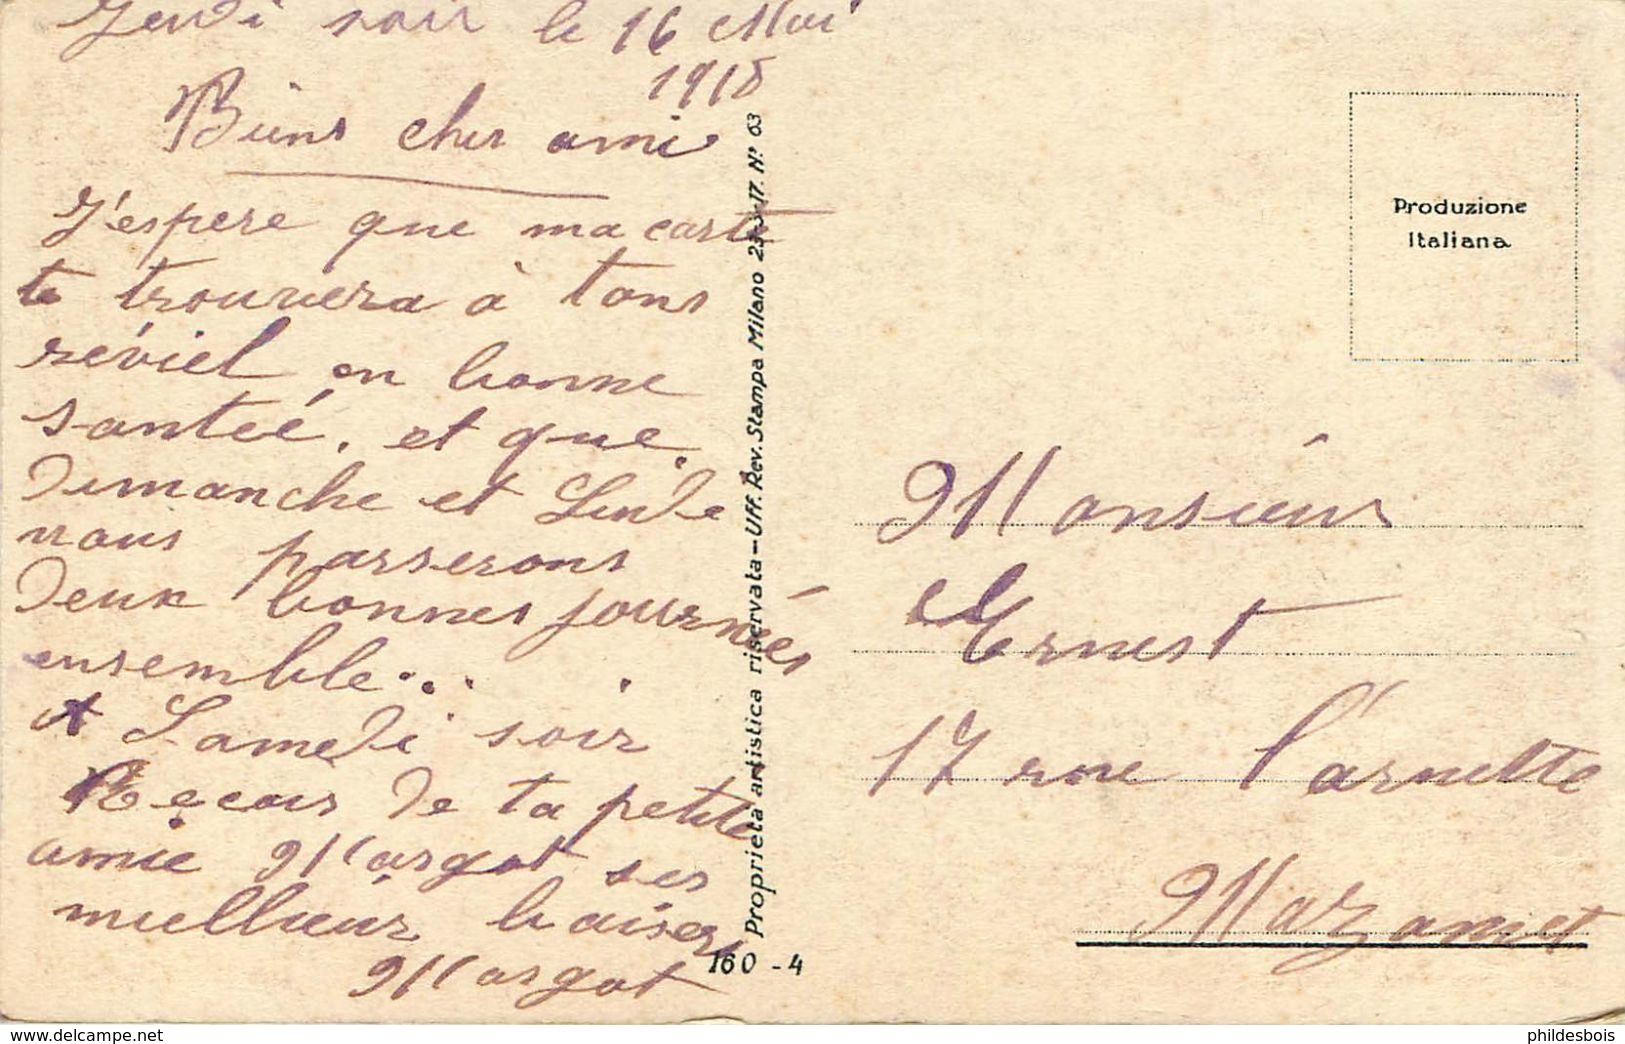 Jeudi soir le 16 Mai
1918
Biens cher ami
J'espere que ma carte
te trouvera à tons
réviel en bonne
santéé, et que
dimanche et Lundi
nous passerons
deux bonnes journés
ensemble...
A Samedi soir
Reçois de ta petite
amie Margot ses
meillieur baisers
Margot
Proprietà artistica riservata - Uff. Rev. Stampa Milano 23-3-17. N.° 63
160 - 4
Produzione
Italiana
Monsieur
Ernest
17 rue l'arnette
Mazamet
© www.delcampe.net
phildesbois